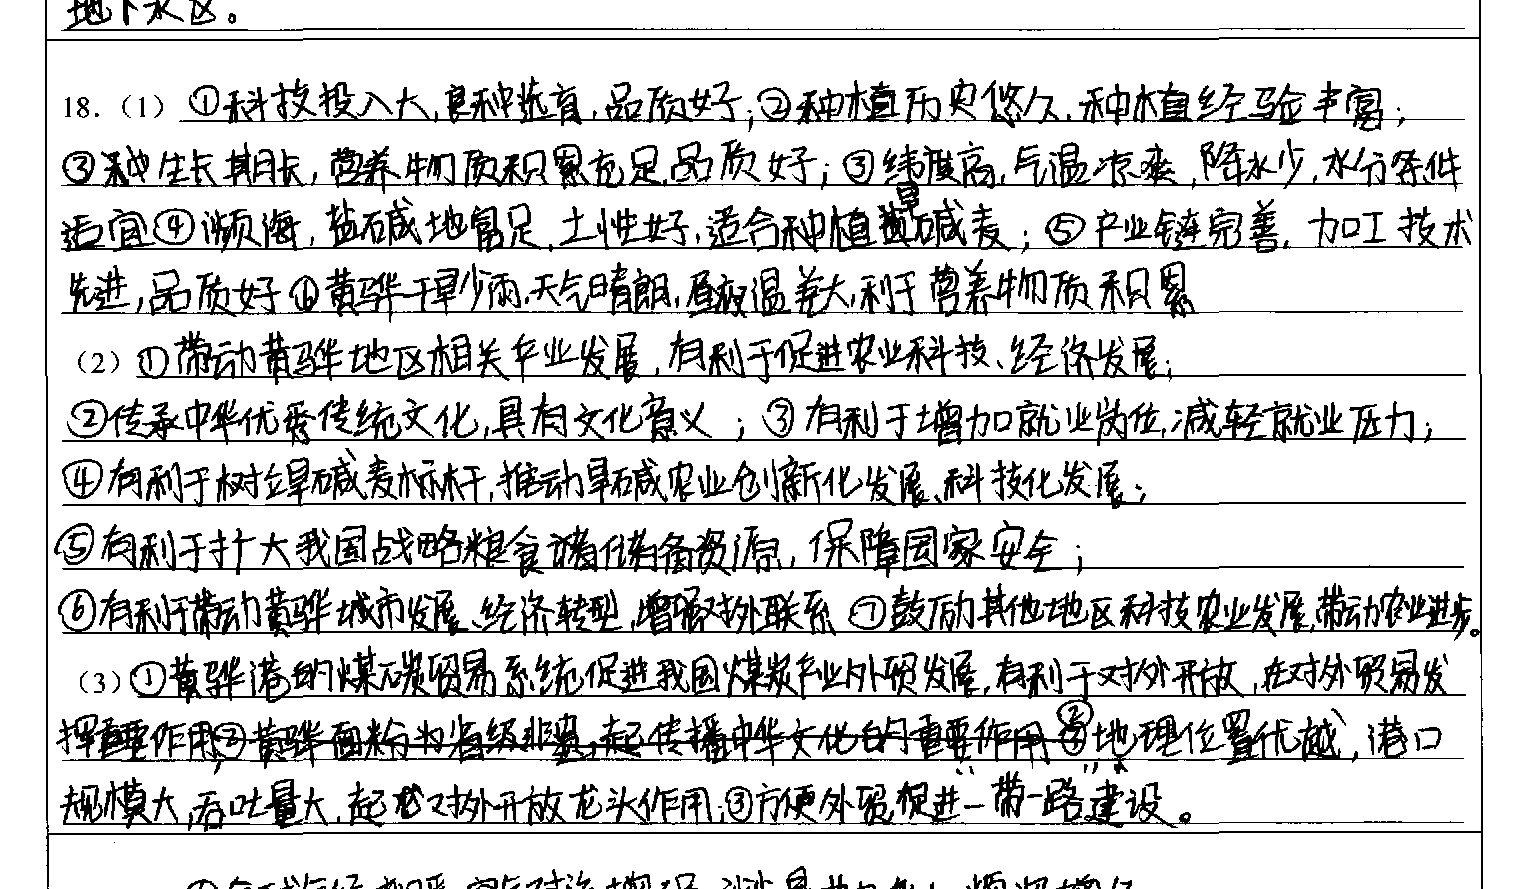 地下水区。
18.（1）①科技投入大,良种选育,品质好;②种植历史悠久,种植经验丰富;
③种生长期长,营养物质积累充足,品质好;③纬度高,气温凉爽,降水少,水分条件
适宜④濒海,盐碱地富足,土性好,适合种植旱碱麦;⑤产业链完善,加工技术
先进,品质好⑥黄骅干旱少雨,天气晴朗,昼夜温差大,利于营养物质积累
（2）①带动黄骅地区相关产业发展,有利于促进农业科技、经济发展;
②传承中华优秀传统文化,具有文化意义;③有利于增加就业岗位,减轻就业压力;
④有利于树立旱碱麦标杆,推动旱碱农业创新化发展、科技化发展;
⑤有利于扩大我国战略粮食储备资源,保障国家安全;
⑥有利于带动黄骅城市发展、经济转型,增强对外联系⑦鼓励其他地区科技农业发展,带动农业进步。
（3）①黄骅港的煤碳贸易系统促进我国煤炭产业外贸发展,有利于对外开放,在对外贸易发
挥重要作用;②黄骅面粉为省级非遗,起传播中华文化的重要作用②地理位置优越,港口
规模大,吞吐量大,起龙对外开放龙头作用;③方便外贸,促进“一带一路”建设。